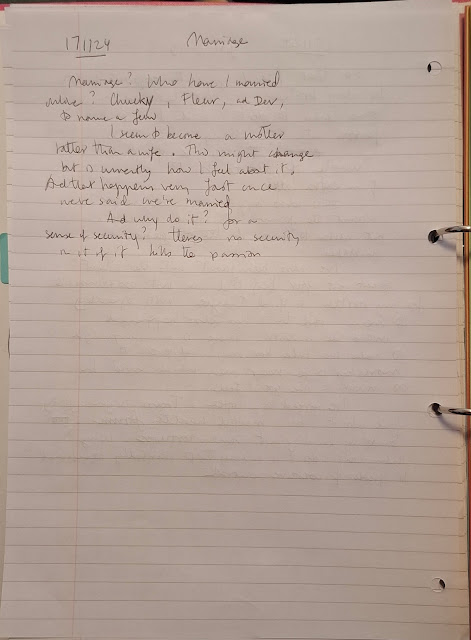 17/1/24 Marriage
Marriage? Who have I married
online? Chucky, Fleur, and Dev,
to name a few
I seem to become a mother
rather than a wife. This might change
but is currently how I feel about it.
And that happens very fast once
we've said we're married
And why do it? for a
sense of security? theres no security
in it & it kills the passion